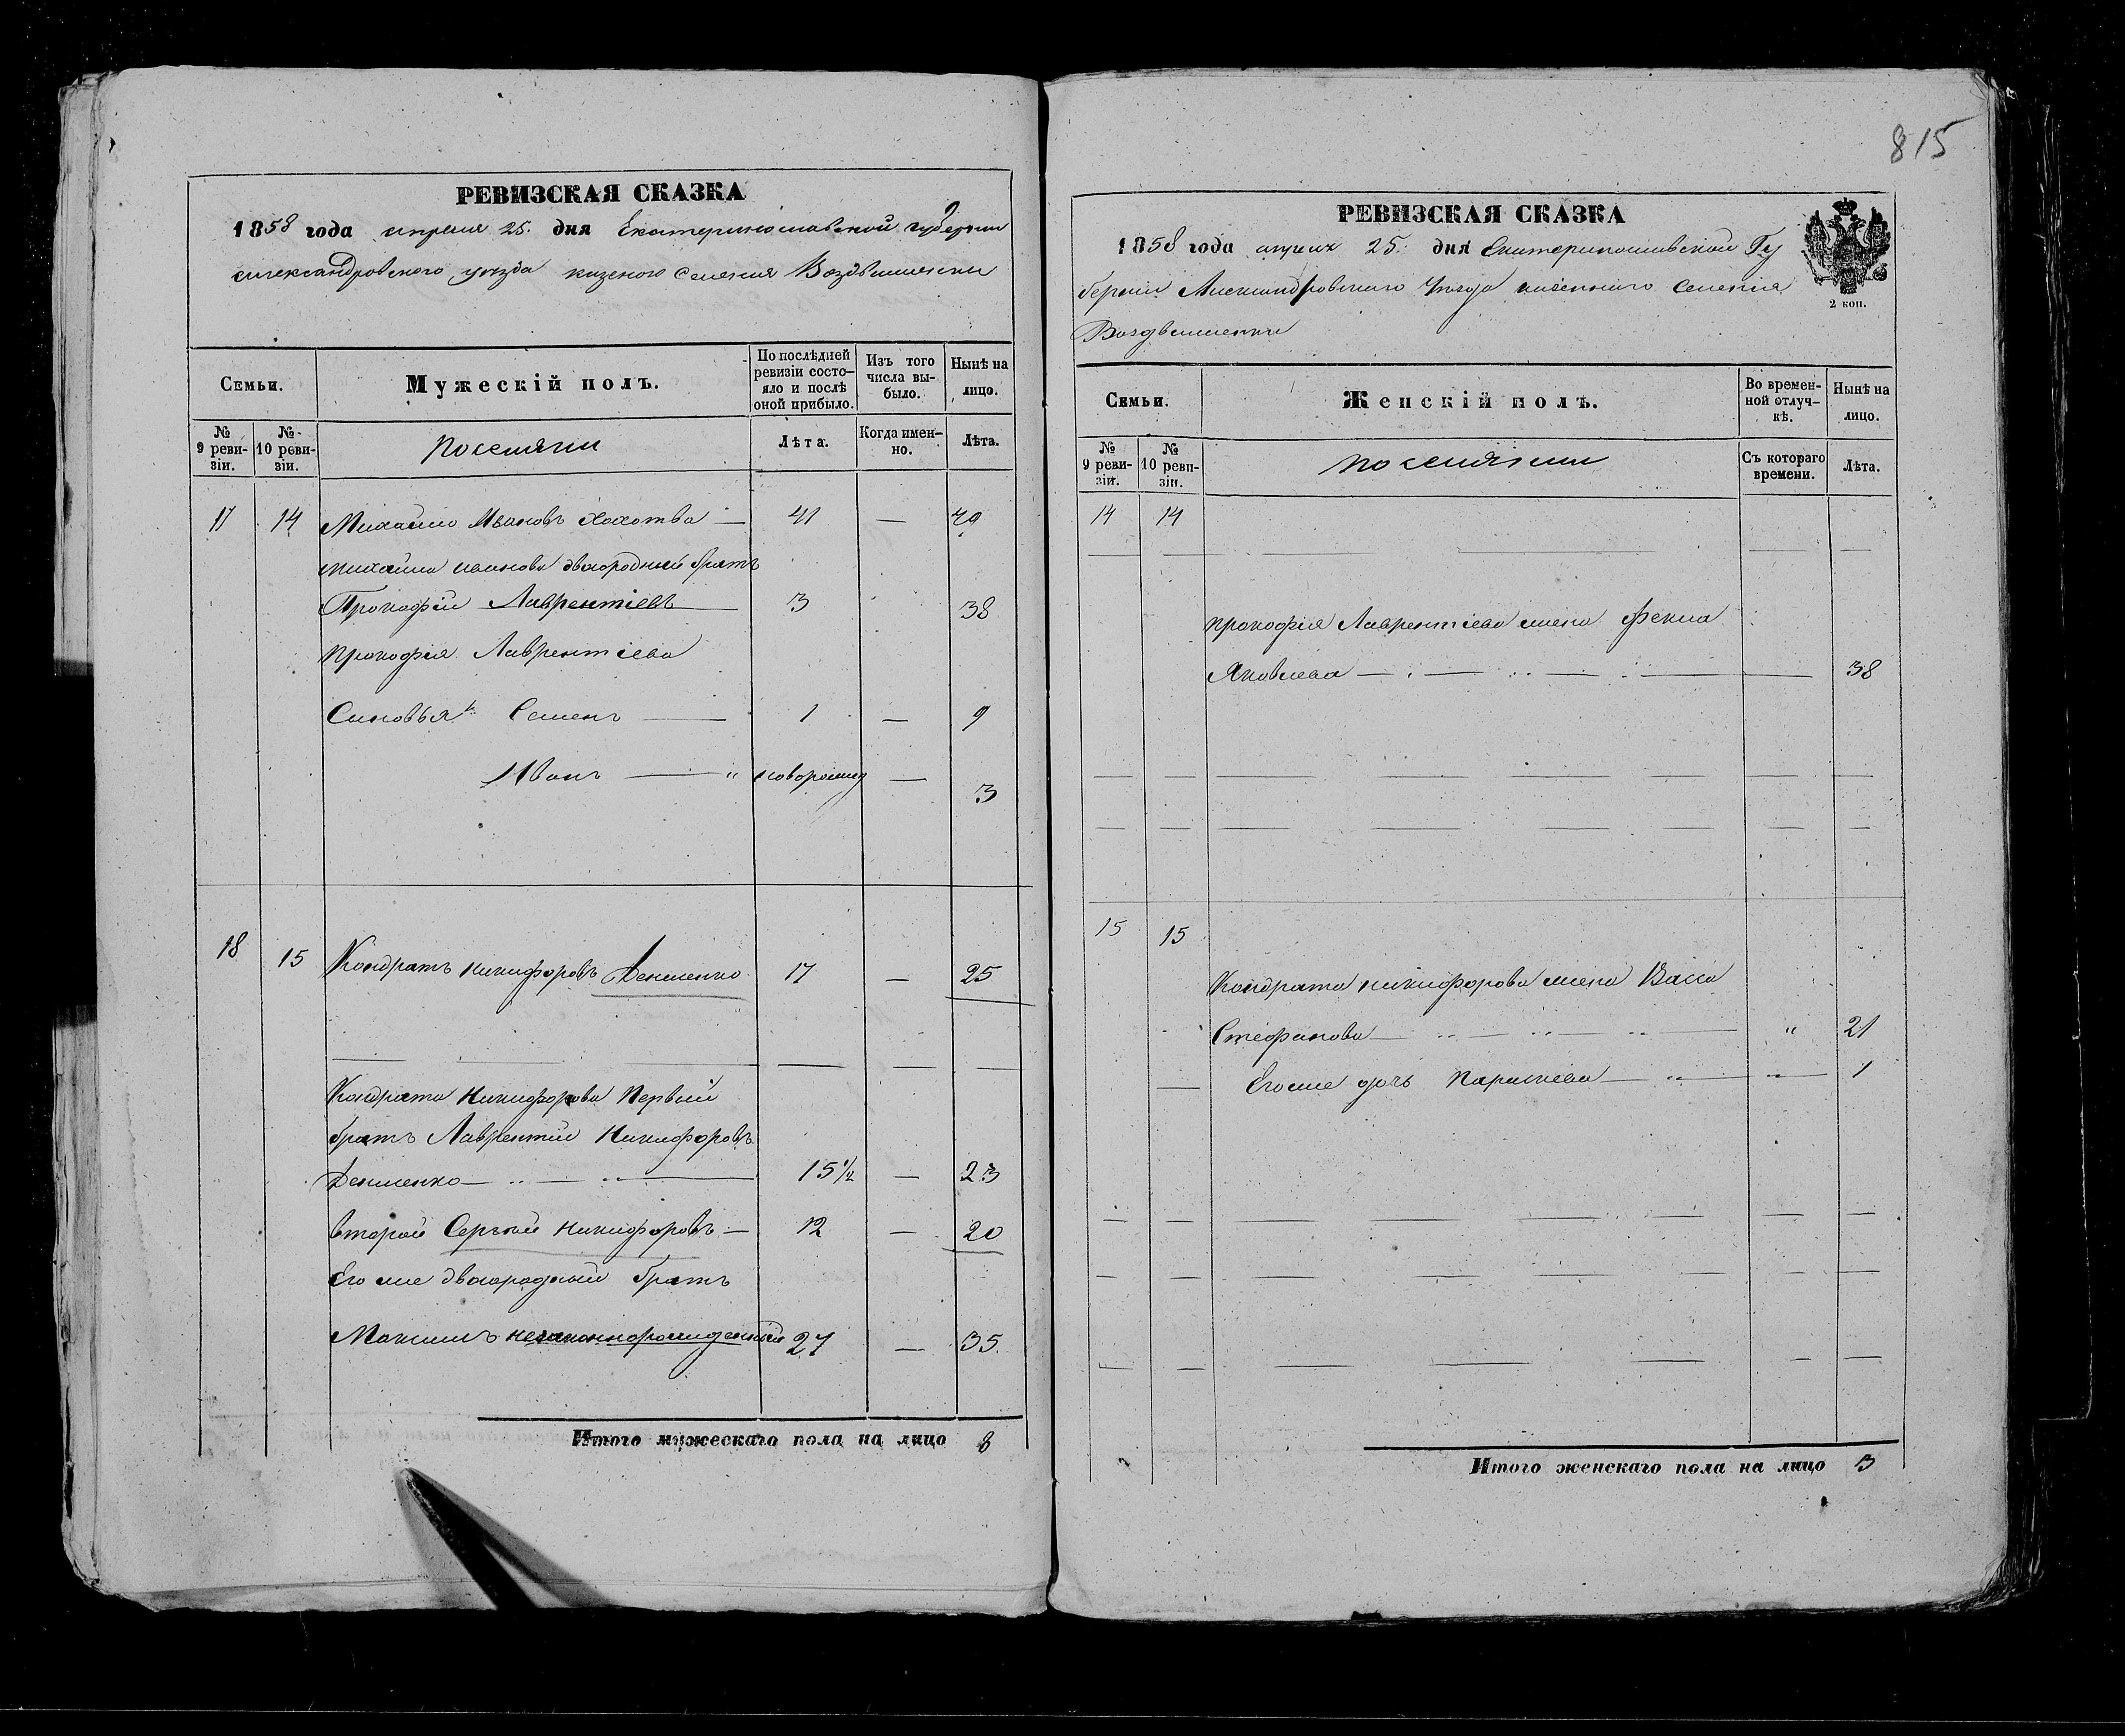 815
РЕВИЗСКАЯ СКАЗКА
1858 года апреля 25. дня Екатеринославской губернии
александровскаго уезда казеного Селения Воздвиженки
Семьи.
Мужескій полъ.
По послѣдней ревизіи состо-
яло и послѣ
оной прибыло.
Изъ того
числа вы-
было.
Нынѣ на
лицо.
№
9 реви-
зіи.
№
10 реви-
зіи.
поселяни
Лѣта.
Когда имен-
но.
Лѣта.
17 14 Михайло Ивановъ — 41 — 49
михайла иванова двоюродный братъ
Прокофій Лаврентіевъ — 3 38
Прокофія Лаврентіева
Сыновья 1. Семенъ — 1 — 9
Иванъ — " новорожд — 3
18 15 Кондратъ Никифоровъ 17 — 25
Кондрата Никифорова Первый
братъ Лаврентій Никифоровъ
15½ — 23
второй Сергѣй Никифоровъ — 12 — 20
Его же двоюродный братъ
Максимъ незаконнорожденный 27 — 35.
Итого мужескаго пола на лицо 8
РЕВИЗСКАЯ СКАЗКА
1858 года апреля 25. дня Екатеринославской Гу
берніи Александровскаго Уѣзда казеннаго Селенія
Воздвиженки
2 коп.
Семьи.
Женскій полъ.
Во времен-
ной отлуч-
кѣ.
Нынѣ на
лицо.
№
9 реви-
зіи.
№
10 реви-
зіи.
поселянки
Съ котораго
времени.
Лѣта.
14 14
прокофія Лаврентіева жена Фекла
Яковлева — 38
15 15
Кондрата никифорова жена Васса
Стефанова — " 21
Его же дочь Параскева — 1
Итого женскаго пола на лицо 3